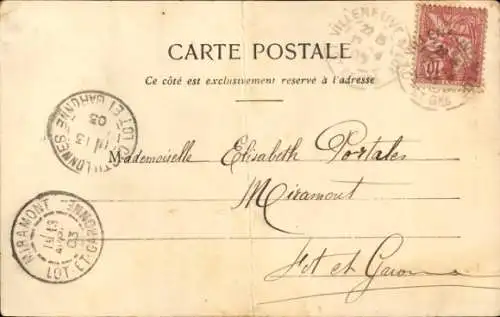 VILLENEUVE
10
CARTE POSTALE
Ce côté est exclusivement reservé à l'adresse
LOT-ET-GARONNE
13
03
Mademoiselle Elisabeth Portales
Miramont
Lot et Garonne
MIRAMONT
13
03
LOT-ET-GARONNE